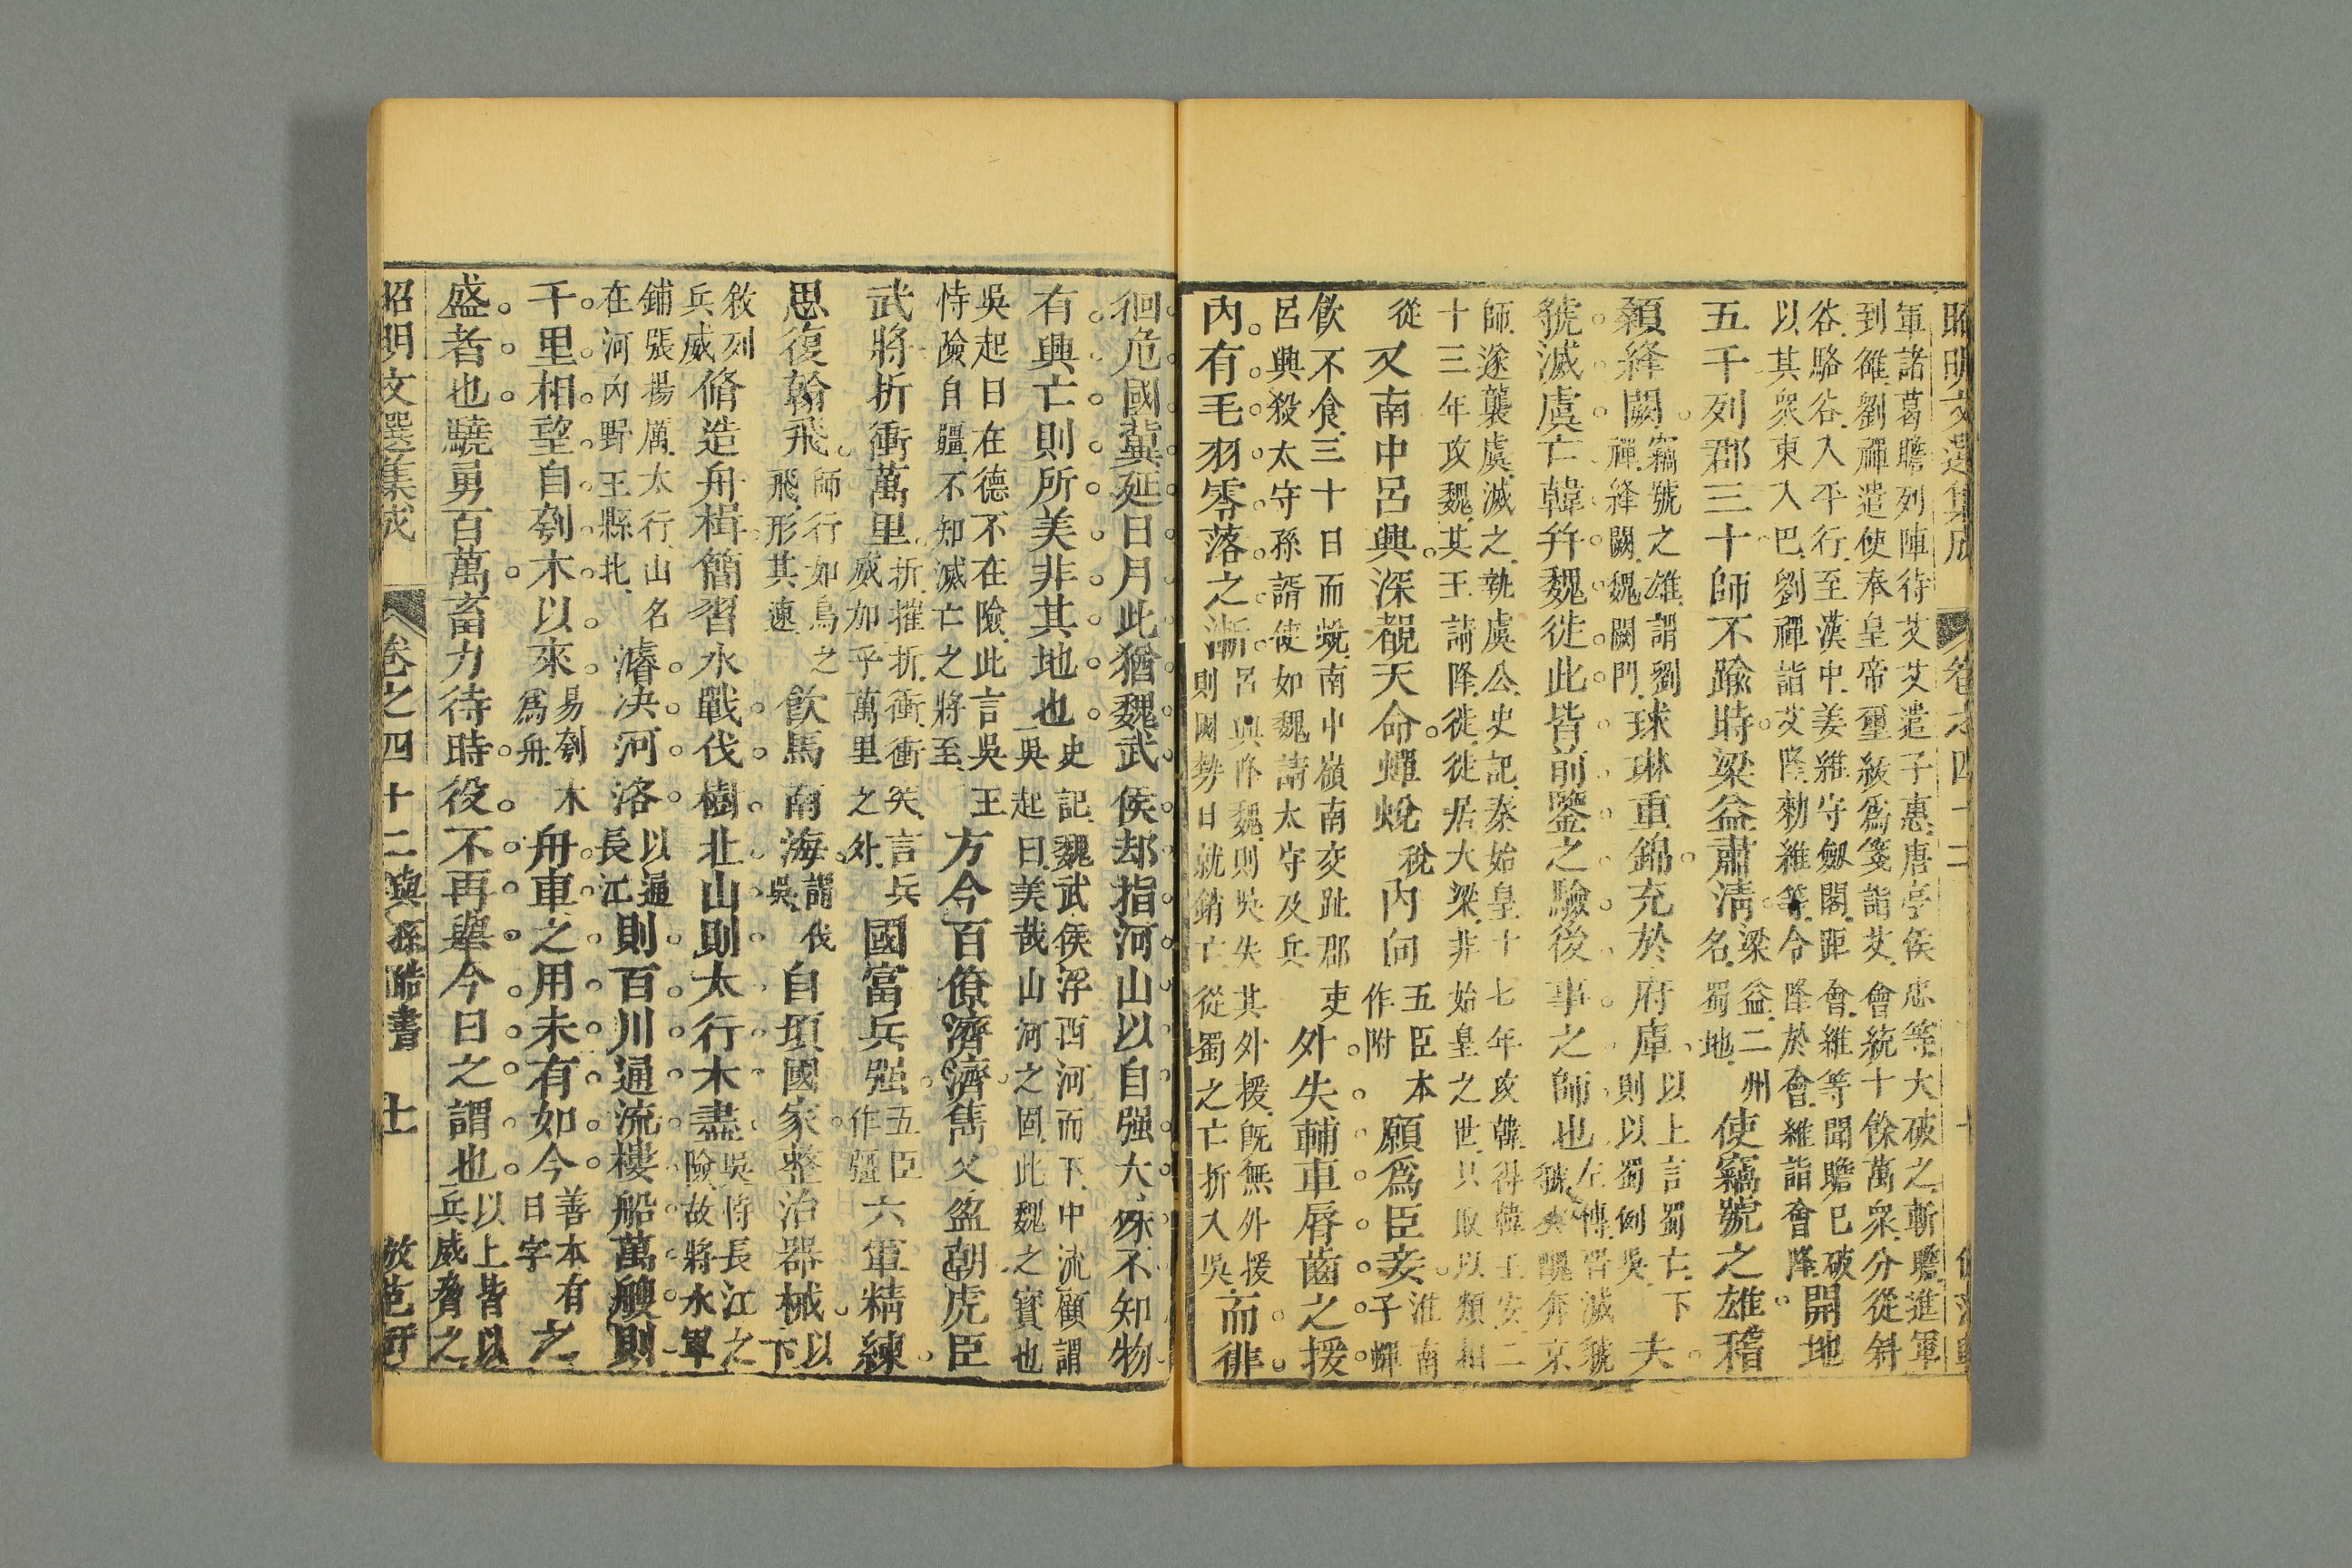 昭明文選集成 卷之四十二
軍諸葛瞻列陣待艾艾遣子惠唐亭侯忠等大破之斬瞻進軍
到雒劉禪遣使奉皇帝璽綬爲箋詣艾會統十餘萬衆分從斜
谷駱谷入平行至漢中姜維守劔閣距會維等聞瞻已破
以其衆東入巴劉禪詣艾降勑維等令降於會維詣會降
開地
五千列郡三十師不踰時梁益肅清
梁益二州
名蜀地
使竊號之雄稽
顙絳闕
竊號之雄謂劉
禪絳闕魏闕門
球琳重錦充於府庫
以上言蜀亡下
則以蜀例吳
夫
虢滅虞亡韓并魏徙此皆前鑒之驗後事之師也
左傳晉滅虢
虢公醜奔京
師遂襲虞滅之執虞公史記秦始皇十七年攻韓得韓王安二
十三年攻魏其王請降徙徙居大梁非始皇之世只取以類相
從
又南中呂興深覩天命蟬蛻
稅
內向
五臣本
作附
願爲臣妾
淮南
子蟬
飲不食三十日而蛻南中嶺南南交趾郡吏
呂興殺太守孫諝使如魏請太守及兵
外失輔車脣齒之援
內有毛羽零落之漸
呂興降魏則吳失其外援旣無外援
則國勢日就銷亡從蜀之亡折入吳
而徘
徊危國冀延日月此猶魏武侯却指河山以自强大殊不知物
有興亡則所美非其地也
史記魏武侯浮西河而下中流顧謂
吳起曰美哉山河之固此魏之寶也
吳起曰在德不在險此言吳王
恃險自疆不知滅亡之將至
方今百僚濟濟雋乂盈朝虎臣
武將折衝萬里
折摧折衝衝突言兵
威加乎萬里之外
國富兵强
五臣
作疆
六軍精練
思復翰飛
師行如鳥之
飛形其速
飲馬南海
謂伐
吳
自頃國家整治器械
以
下
敘列
兵威
脩造舟楫簡習水戰伐樹北山則太行木盡
吳恃長江之
險故將水軍
鋪張揚厲太行山名
在河內野王縣北
濬決河洛
以通
長江
則百川通流樓船萬艘
則
千里相望自刳木以來
易刳木
爲舟
舟車之用未有如今
善本有之
日字
盛者也驍勇百萬畜力待時役不再舉今日之謂也
以上皆以
兵威脅之
昭明文選集成 卷之四十二與孫皓書 十一